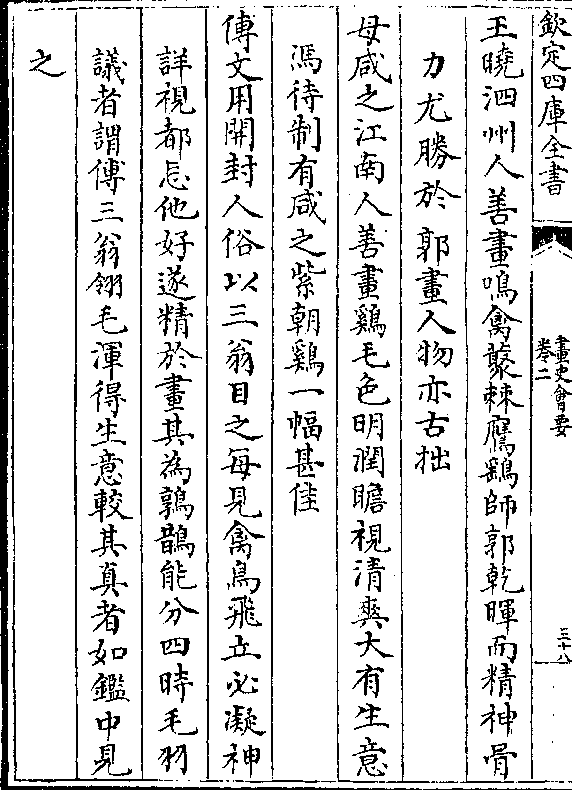 欽定四庫全書
畫史會要
卷二
三十八
王曉泗州人善畫鳴禽藂棘鷹鷂師郭乾暉而精神骨
力尤勝於郭畫人物亦古拙
母咸之江南人善畫鷄毛色明潤瞻視清爽大有生意
馮待制有咸之紫朝鷄一幅甚佳
傅文用開封人俗以三翁目之每見禽鳥飛立必凝神
詳視都忘他好遂精於畫其為鶉鵲能分四時毛羽
議者謂傅三翁翎毛渾得生意較其真者如鑑中見
之